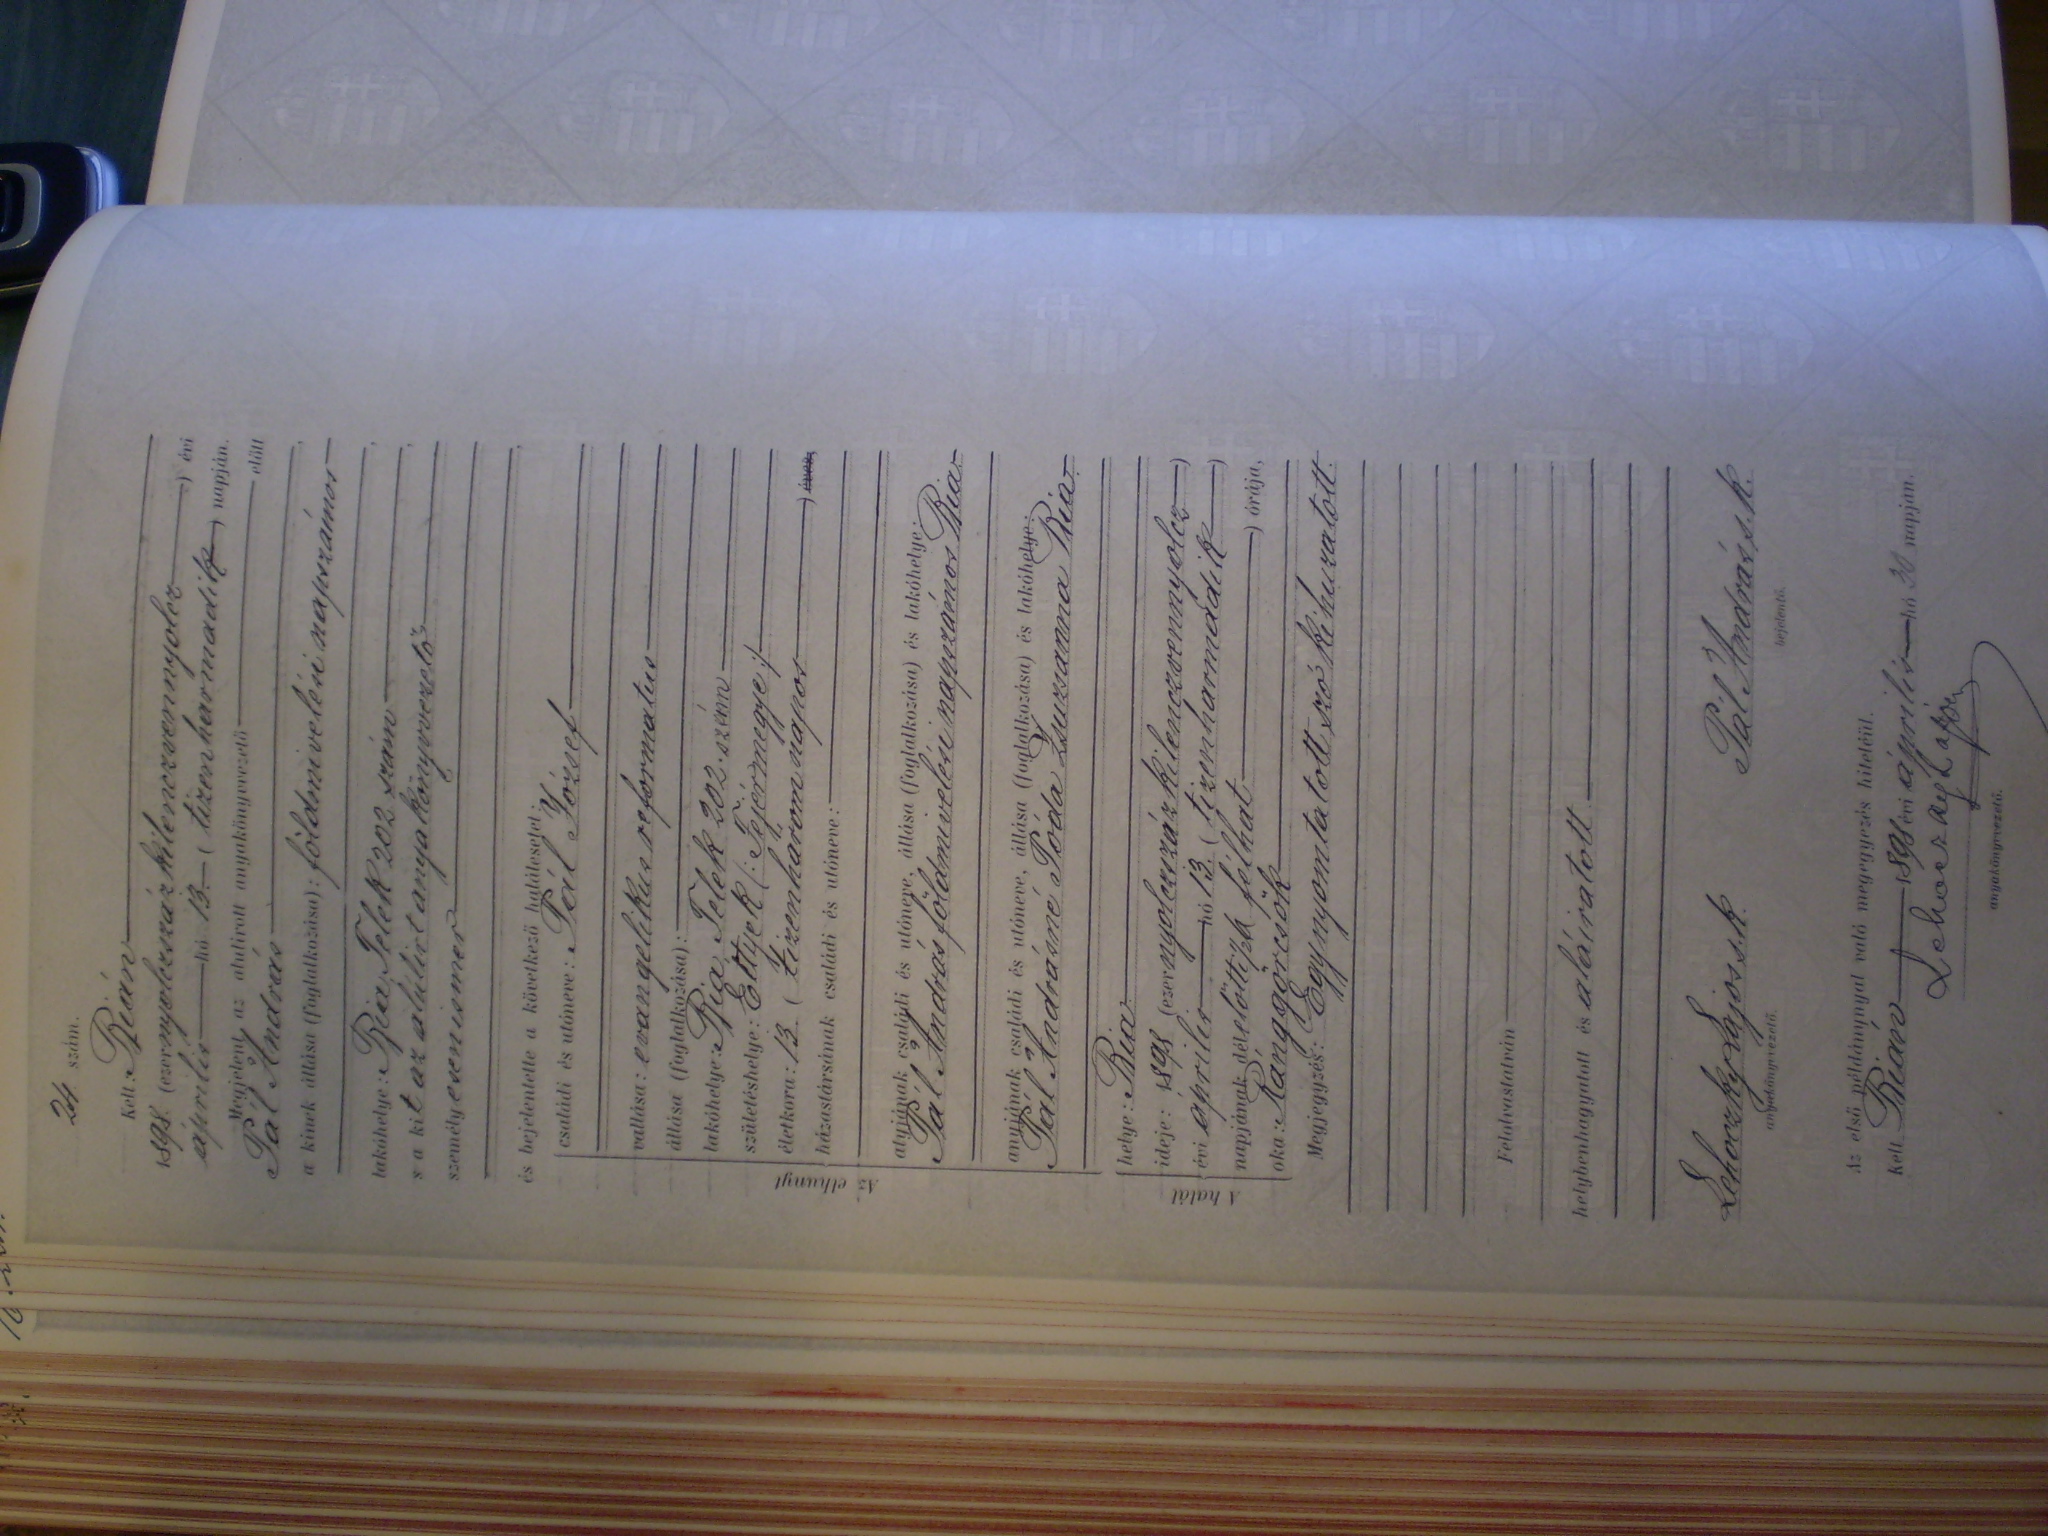 24 szám.
Kelt: Bián
1898. (ezernyolczszázkilenczvennyolcz) évi
április hó 13. (tizenharmadik) napján.
Megjelent az alulirott anyakönyvvezető előtt
Pál András
a kinek állása (foglalkozása): földmivelési napszámos,
lakóhelye: Bia, Telek 202 szám,
s a kit az alulirt anyakönyvvezető,
személyesen ismer,
és bejelentette a következő halálesetet:
Az elhunyt
családi és utóneve: Pál József
vallása: evangelikus reformatus
állása (foglalkozása):
lakóhelye: Bia, Telek 202. szám
születéshelye: Ettyek (: Fejérmegye :)
életkora: 13 (tizenhárom napos) éves,
házastársának családi és utóneve:
atyjának családi és utóneve, állása (foglalkozása) és lakóhelye:
Pál András földmivelési napszámos Bia.
anyjának családi és utóneve, állása (foglalkozása) és lakóhelye:
Pál Andrásné Póda Zsuzsanna Bia.
A halál
helye: Bia
ideje: 1898 (ezernyolczszázkilenczvennyolcz)
évi április hó 13. (tizenharmadik)
napjának délelőttjén félhat) órája,
oka: Rángörcsök
Megjegyzés: Egy nyomtatott szó kihuzatott.
Felolvastatván
helybenhagyatott és aláiratott.
Lehoczky Lajos s.k. Pál András s.k.
anyakönyvvezető. bejelentő.
Az első példánynyal való megegyezés hiteléül.
Kelt Bián 1898 évi április hó 30 napján.
Lehoczky Lajos
anyakönyvvezető.